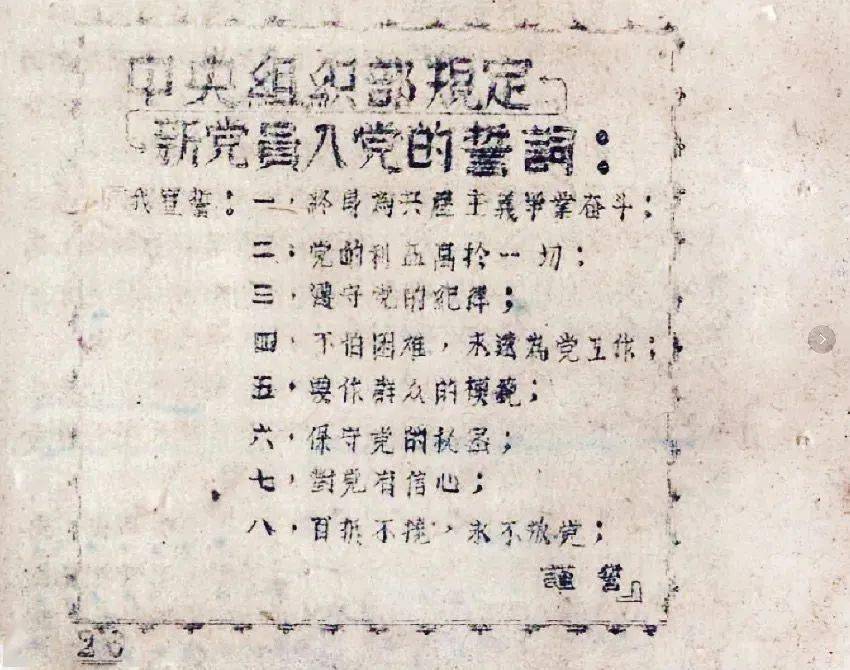 中央組织部規定
新党員入党的誓詞：
『我宣誓：一，終身為共產主義事業奋斗；
二；党的利益高於一切；
三，遵守党的紀律；
四，不怕困难，永遠為党工作；
五，要作群众的模範；
六，保守党的秘密；
七，對党有信心；
八，百折不撓，永不叛党；
謹誓』
26